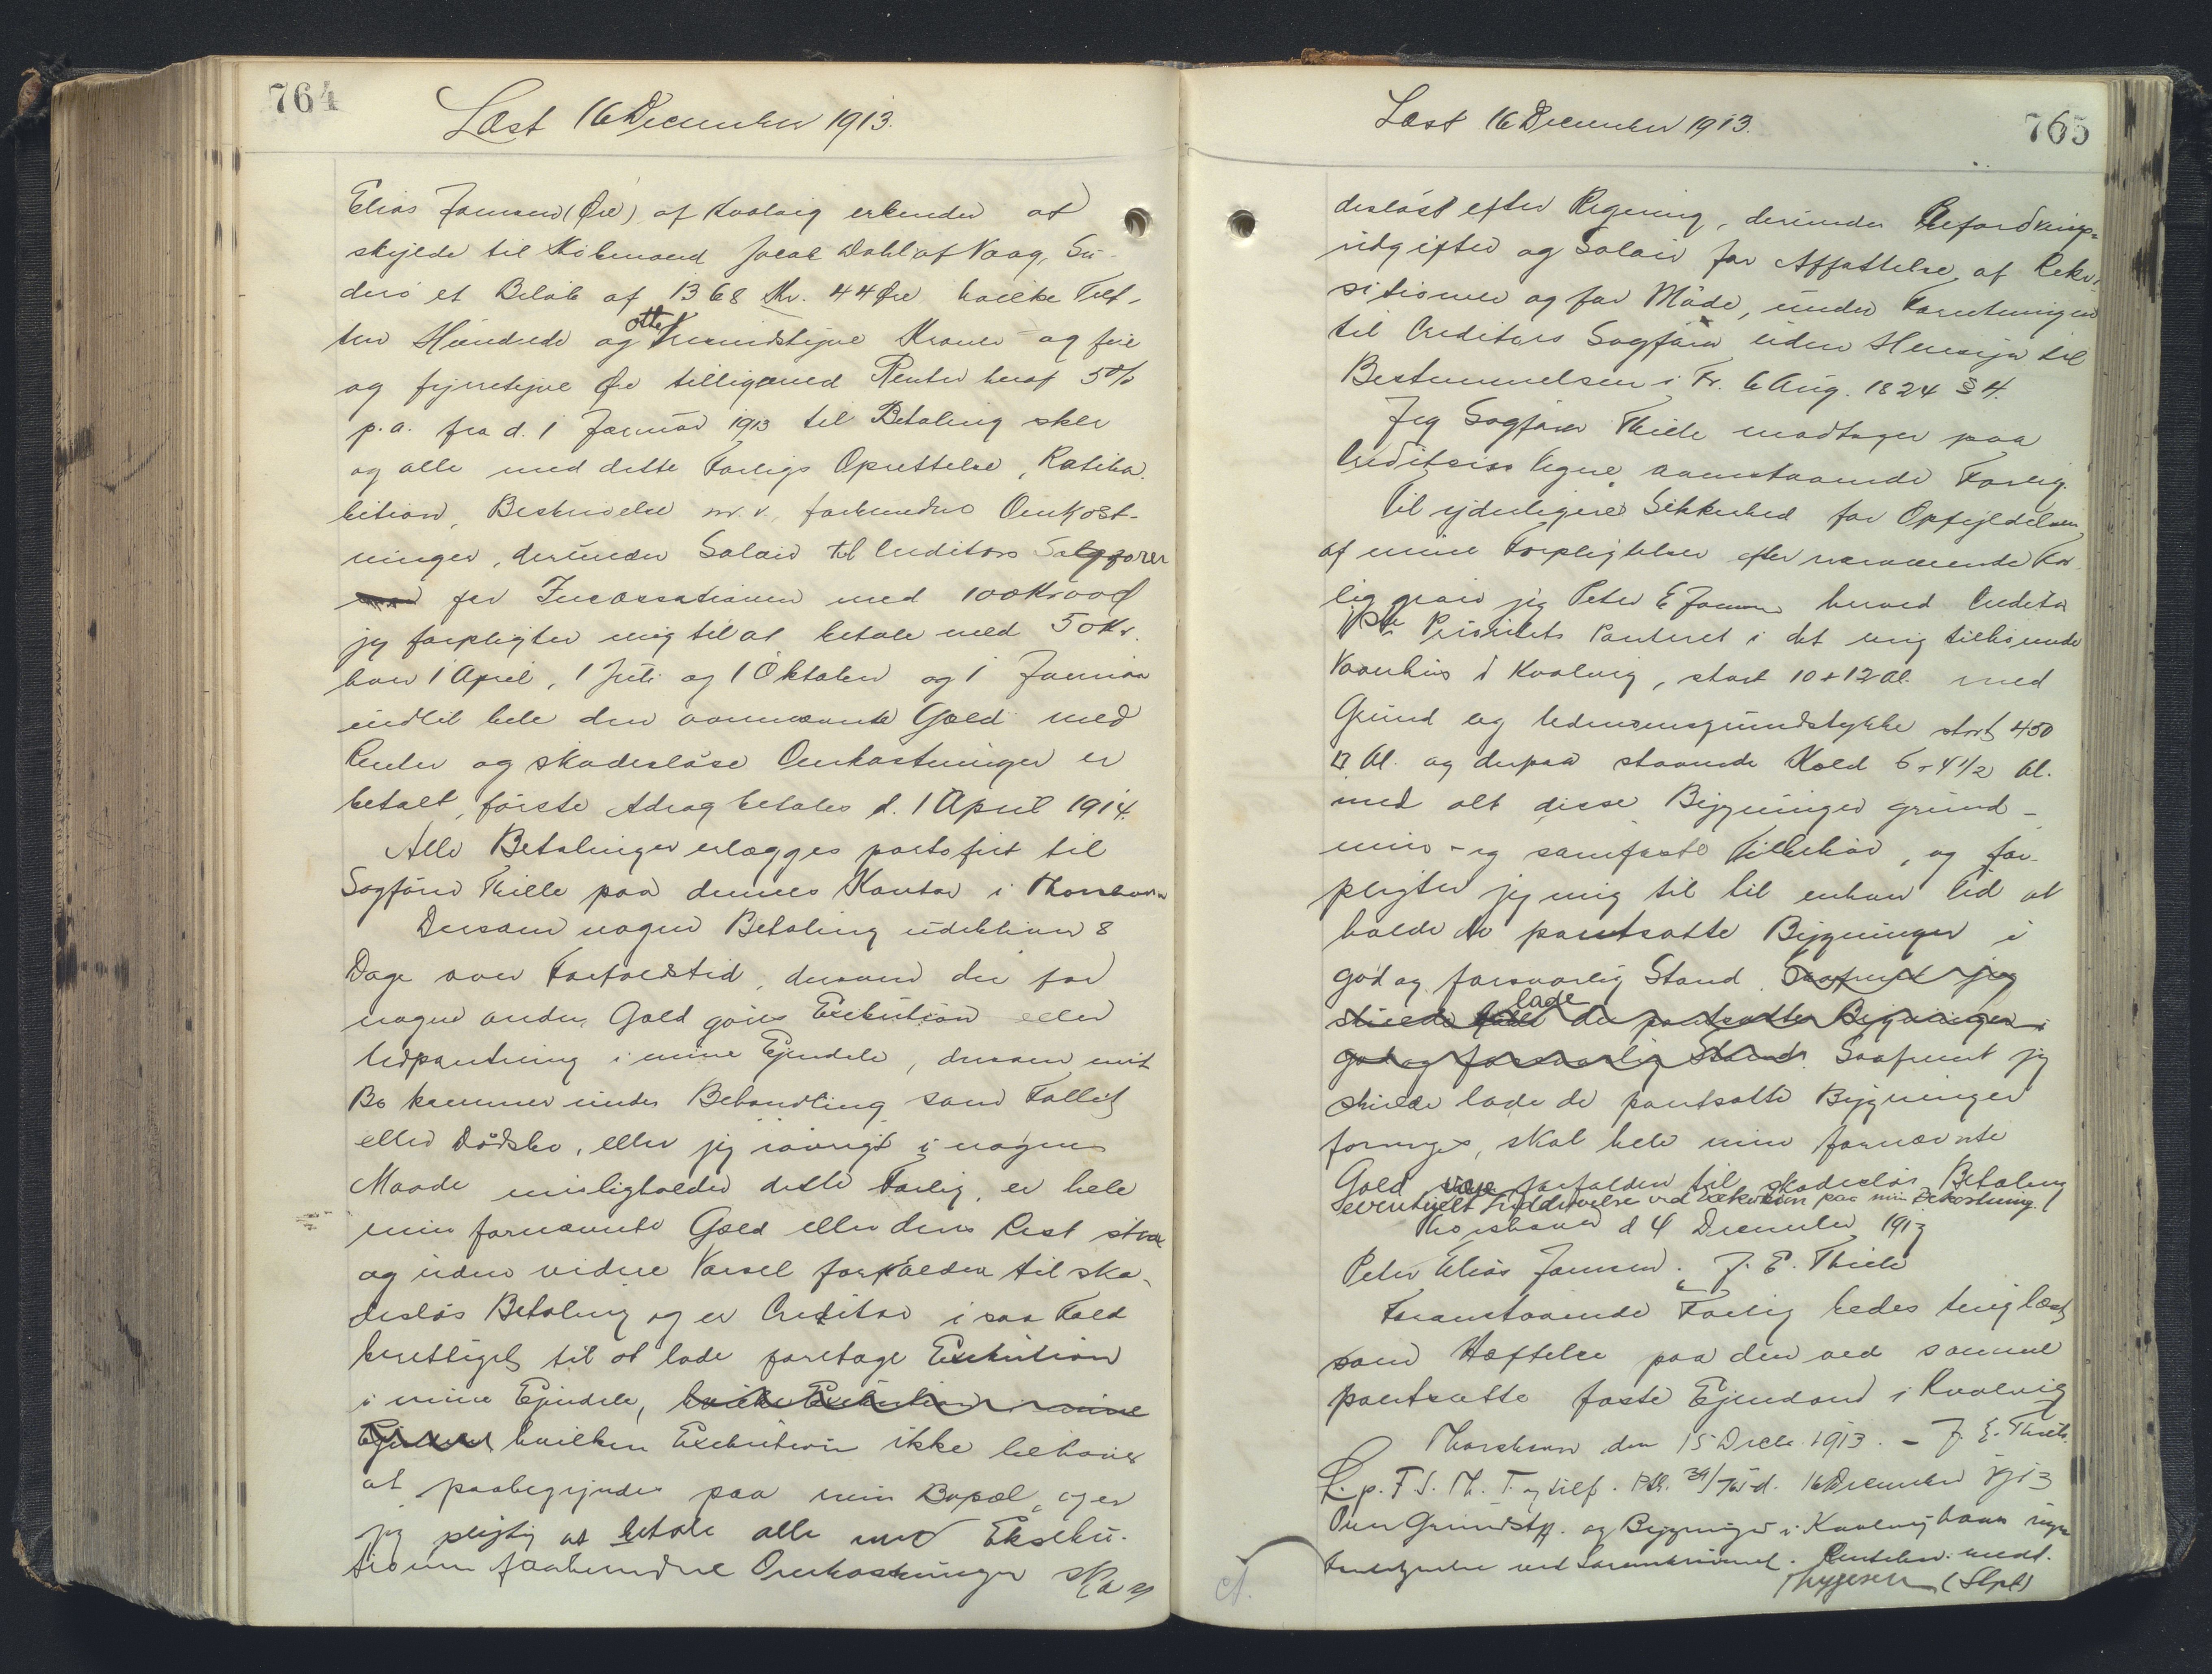 764
Læst 16 December 1913.
Elias Joensen (Øre) af Kvalvig erkender at
skylde til Købmand Jacob Dahl af Vaag, Su-
derö et Beløb af 1368 Kr. 44 Øre hvilke Tret-
ten Hundrede og otte Tresindstyve Kroner og fire
og fyrretyve Øre tilligemed Renter heraf 5%
p.a. fra d. 1 Januar 1913 til Betaling sker
og alle med dette Forligs Oprettelse, Ratiha-
bition, Beskrivelse m.v. forbundne Omkost-
ninger, derunder Salair til Creditors Sagfører
for Incassationen med 100 Kr
jeg forpligter mig til at betale med 50 Kr.
hver 1 April, 1 Juli og 1 Oktober og 1 Januar
indtil hele den ovennævnte Gæld med
Renter og skadesløse Omkostninger er
betalt, første Afdrag betales d. 1 April 1914.
Alle Betalinger erlægges portofrit til
Sagfører Thiele paa dennes Kontor i Thorshavn
Dersom nogen Betaling udebliver 8
Dage over Forfaldstid, dersom der for
nogen anden Gæld gøres Exekution eller
Udpantning i mine Ejendele, dersom mit
Bo kommer under Behandling som Fallit
eller Dødsbo, eller jeg iøvrigt i nogen
Maade misligholder dette Forlig, er hele
min fornævnte Gæld eller dens Rest strax
og uden videre Varsel forfalden til ska-
desløs Betaling og er Creditor i saa Fald
berettiget til at lade foretage Exekution
i mine Ejendele, hvilke Exekution mine
Ejendele hvilken Exekution ikke behøver
at paabegyndes paa min Bopæl, og er
jeg pligtig at betale alle med Exeku-
tionen forbundne Omkostninger ska
765
Læst 16 December 1913.
desløst efter Regning, derunder Befordrings-
udgifter og Salair for Affattelse af Rekvi-
sitioner og for Møde, under Forretningen
til Creditors Sagfører uden Hensyn til
Bestemmelsen i Fr. 6 Aug. 1824 § 4.
Jeg Sagfører Thiele modtager paa
Creditors Vegne ovenstaaende Forlig.
Til yderligere Sikkerhed for Opfyldelsen
af mine Forpligtelser efter nærværende For-
lig giver jeg Peter E Joensen herved Creditor
1ste Prioritets Panteret i det mig tilhørende
Vaanhus i Kvalvig, stort 10 + 12 Al. med
Grund og Udenomsgrundstykke stort 450
□ Al. og derpaa staaende Hold 6 + 4 1/2 Al.
med alt disse Bygninger grund-
mur- og sømfaste Tilbehør, og for-
pligter jeg mig til til enhver Tid at
holde de pantsatte Bygninger i
god og forsvarlig Stand. Saafremt jeg
skulde lade de pantsatte Bygninger i
god og forsvarlig Stand. Saafremt jeg
skulde lade de pantsatte Bygninger
forringes, skal hele min fornævnte
Gæld være forfalden til skadesløs Betaling
eventuelt ved Exekution paa min Bekostning.
Thorshavn d 4 December 1913
Peter Elias Joensen. J. E. Thiele
Foranstaaende Forlig bedes tinglæst
som Hæftelse paa den ved samme
pantsatte faste Ejendom i Kvalvig
Thorshavn den 15 Decbr. 1913. – J. E. Thiele.
16 December 1913
Over Grundstk. og Bygninger i Kvalvig haves ingen
Thygesen (Slpt)